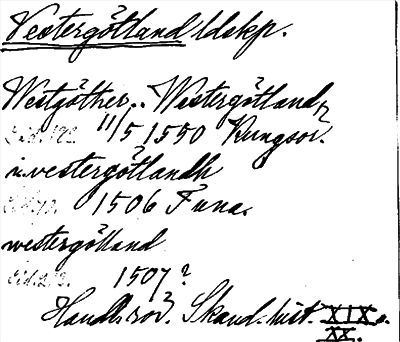 Vestergötland ldskp.
Westgöther, Westergötland,
11/5 1550 Kungsör.
i vestergötlandh
1506 Tuna.
westergötland
1507?
Handl. rör. Skand. hist. XIX.
XX.